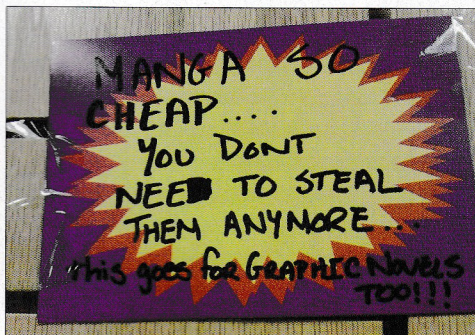 MANGA SO
CHEAP....
YOU DONT
NEED TO STEAL
THEM ANYMORE...
this goes for GRAPHIC NOVELS
TOO!!!